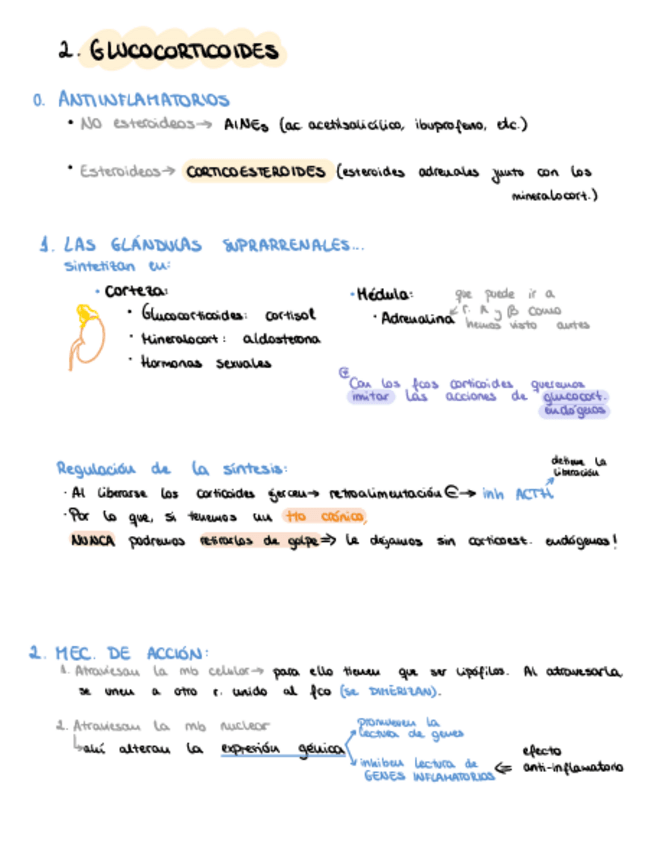 2. GLUCOCORTICOIDES
0. ANTIINFLAMATORIOS
• NO esteroideos → AINEs (ac. acetilsalicílico, ibuprofeno, etc.)
• Esteroideos → CORTICOESTEROIDES (esteroides adrenales junto con los
mineralocort.)
1. LAS GLÁNDULAS SUPRARRENALES...
Sintetizan en:
• Corteza:
• Glucocorticoides: cortisol
• Mineralocort: aldosterona
• Hormonas sexuales
• Médula:
• Adrenalina
que puede ir a
r. α y β como
hemos visto antes
⊕
Con los fcos corticoides queremos
imitar las acciones de glucocort.
endógenos
Regulación de la síntesis:
detiene la
liberación
· Al liberarse los corticoides ejercen → retroalimentación ⊖ → inh ACTH
· Por lo que, si tenemos un tto crónico,
NUNCA podremos retirarlos de golpe ⇒ le dejamos sin corticoest. endógenos!
2. MEC. DE ACCIÓN:
1. Atraviesan la mb celular → para ello tienen que ser lipófilos. Al atravesarla,
se unen a otro r. unido al fco (se DIMERIZAN).
2. Atraviesan la mb nuclear
↳ ahí alteran la expresión génica
promueven la
lectura de genes
inhiben lectura de
GENES INFLAMATORIOS
⇐ efecto
anti-inflamatorio